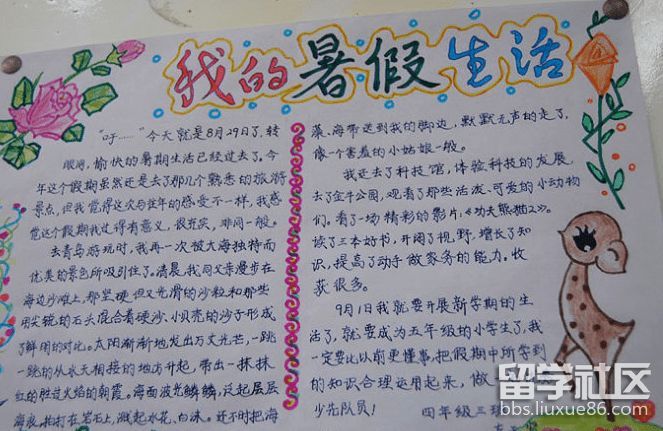 我的暑假生活
“吁……”今天就是8月29日了,转
眼间,愉快的暑期生活已经过去了。今
年这个假期虽然还是去了那几个熟悉的旅游
景点,但我觉得这次与往年的感受不一样,我感
觉这个假期我过得有意义、很充实,非同一般。
去青岛游玩时,我再一次被大海独特而
优美的景色所吸引住了。清晨,我同父亲漫步在
海边沙滩上,那坚硬但又光滑的沙粒和那些
用尖锐的石头混合着硬沙、小贝壳的沙子形成
了鲜明的对比。太阳渐渐地发出万丈光芒,一跳
一跳的从水天相接的地方开起,带出一抹抹
红的胜过火焰的朝霞。海面波光鳞鳞,泛起层层
海浪,拍打在岩石上,溅起水花、白沫。还不时把海
藻、海带送到我的脚边,默默无声的走了,
像一个害羞的小姑娘一般。
我还去了科技馆,体验科技的发展,
去了金牛公园,观看了那些活泼、可爱的小动物
们。看了一场精彩的影片,《功夫熊猫2》。
读了三本好书,开阔了视野,增长了知
识,提高了动手做家务的能力,收
获很多。
9月1日我就要开展新学期的生
活了,就要成为五年级的小学生了,我
一定要比以前更懂事,把假期中所学到
的知识合理运用起来,做
少先队员!
四年级三班
留学社区
bbs.liuxue86.com